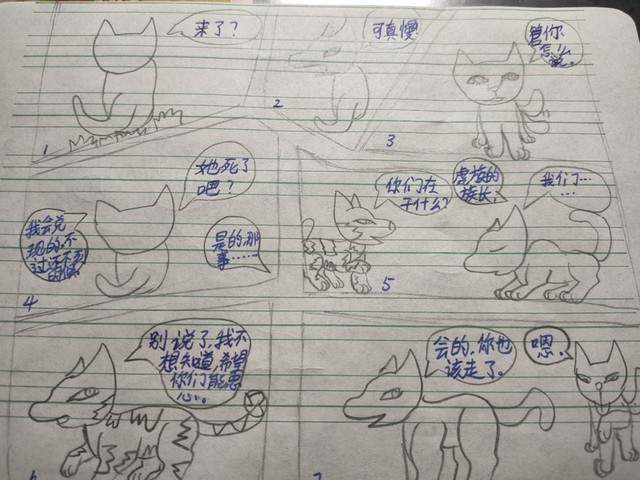 来了？
可真慢
管你
怎么
说。
1
2
3
她死了
吧？
我会兑
现的，不
过还不到
时候
是的，那
事……
4
你们在
干什么？
虎族的
族长，
我们……
……
5
别说了，我不
想知道，希望
你们能
心。
6
会的，你也
该走了。
嗯。
7